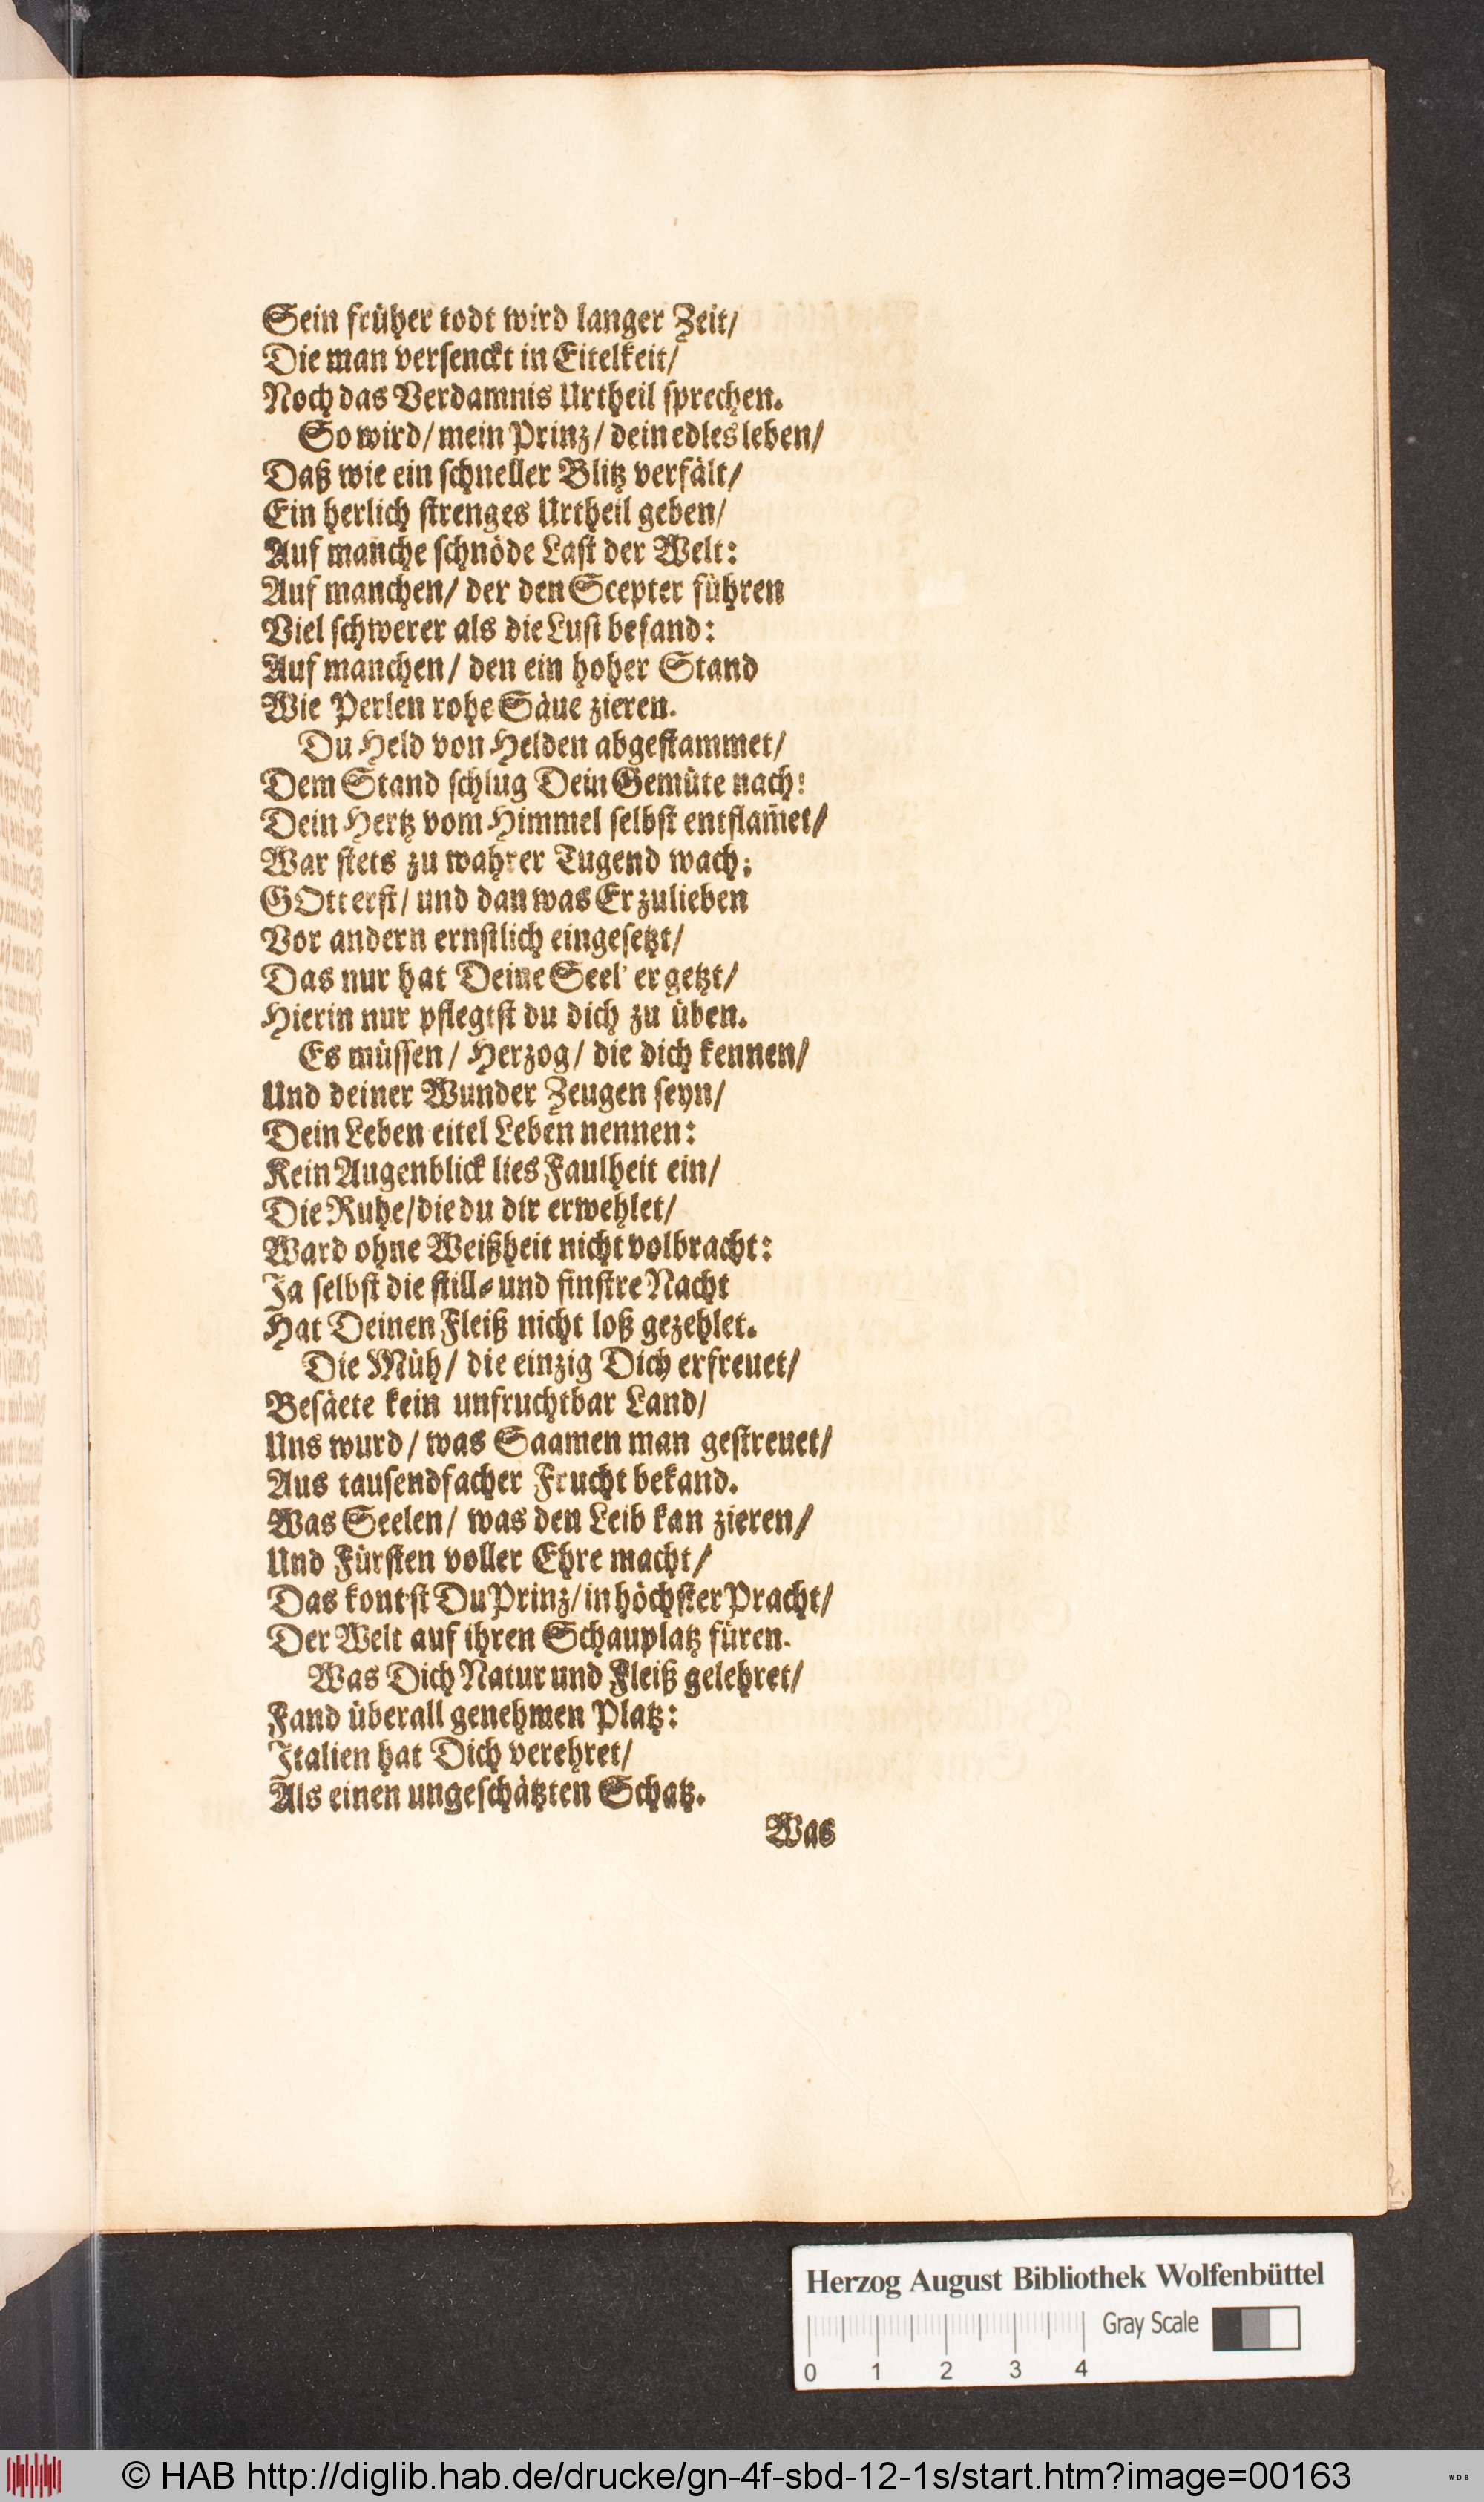 Sein früher todt wird langer Zeit/
Die man versenckt in Eitelkeit/
Noch das Verdamnis Urtheil sprechen.
So wird/ mein Prinz/ dein edles leben/
Daß wie ein schneller Blitz verfält/
Ein herlich strenges Urtheil geben/
Auf manche schnöde Last der Welt:
Auf manchen/ der den Scepter führen
Viel schwerer als die Lust befand:
Auf manchen/ den ein hoher Stand
Wie Perlen rohe Säue zieren.
Du Held von Helden abgestammet/
Dem Stand schlug Dein Gemüte nach!
Dein Hertz vom Himmel selbst entflam̃et/
War stets zu wahrer Tugend wach;
GOtt erst/ und dan was Er zulieben
Vor andern ernstlich eingesetzt/
Das nur hat Deine Seel' ergetzt/
Hierin nur pflegtst du dich zu üben.
Es müssen/ Herzog/ die dich kennen/
Und deiner Wunder Zeugen seyn/
Dein Leben eitel Leben nennen:
Kein Augenblick lies Faulheit ein/
Die Ruhe/ die du dir erwehlet/
Ward ohne Weißheit nicht volbracht:
Ja selbst die still- und finstre Nacht
Hat Deinen Fleiß nicht loß gezehlet.
Die Müh/ die einzig Dich erfreuet/
Besäete kein unfruchtbar Land/
Uns wurd/ was Saamen man gestreuet/
Aus tausendfacher Frucht bekand.
Was Seelen/ was den Leib kan zieren/
Und Fürsten voller Ehre macht/
Das kontst Du Prinz/ in höchster Pracht/
Der Welt auf ihren Schauplatz füren.
Was Dich Natur und Fleiß gelehret/
Fand überall genehmen Platz:
Italien hat Dich verehret/
Als einen ungeschätzten Schatz.
Was
Herzog August Bibliothek Wolfenbüttel
Gray Scale
0 1 2 3 4
© HAB http://diglib.hab.de/drucke/gn-4f-sbd-12-1s/start.htm?image=00163
W D B